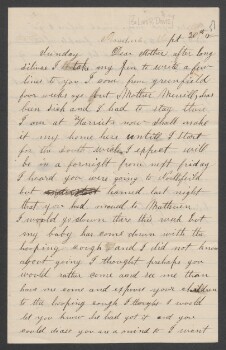 Sept. 20th
Sunday Dear Mother after long
silence I take my pen to write a few
lines to you I come from greenfield
four weeks ago but Mother Merrill has
been sick and I had to stay there
I am at Harriets now shall make
it my home here until I start
for the south which I expect will
be in a fornight from next friday
I heard you were going to
but learned last night
that you had moved to
I would go down there this week but
my baby has come down with the
hooping cough and I did not know
about going I thought perhaps you
would rather come and see me than
have me come and expose your children
to the hooping cough I thought I would
let you know he had got it and you
could do as you are a mind to I want